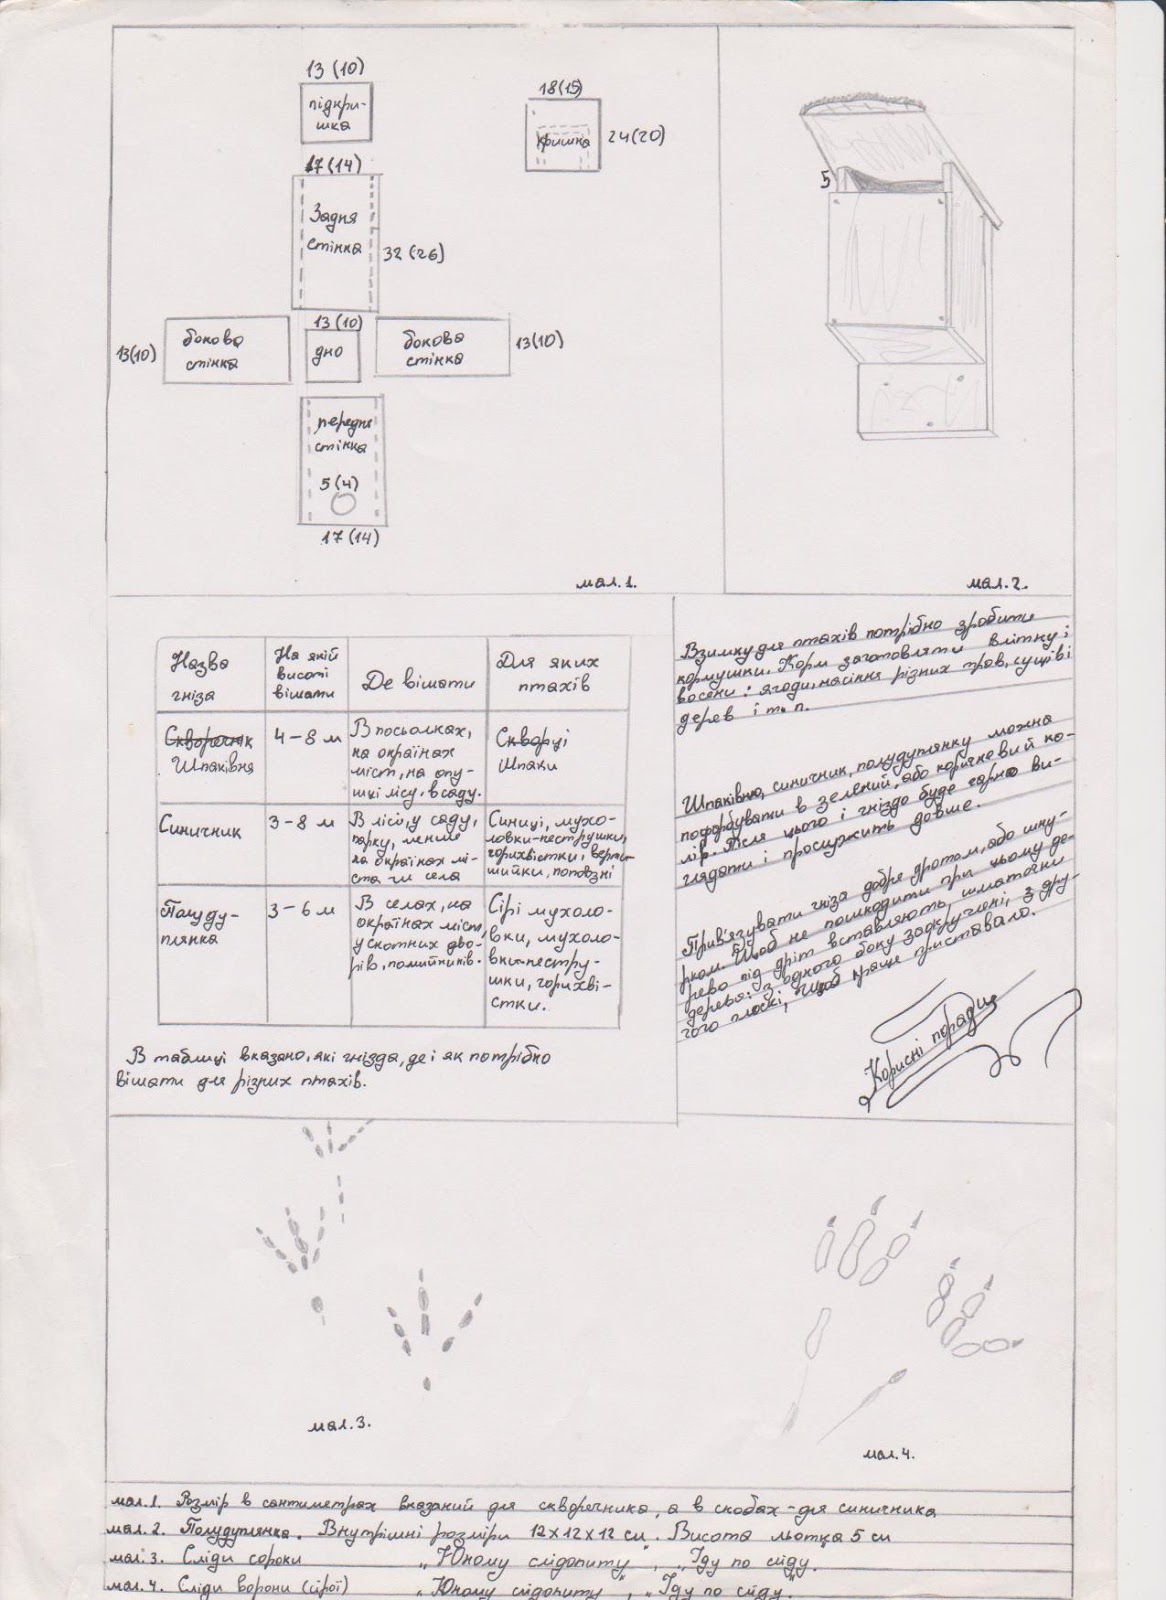 13 (10)
підкри-
шка
18(15)
кришка
24(20)
17 (14)
Задня
стінка
32 (26)
13(10)
бокова
стінка
13 (10)
дно
бокова
стінка
13(10)
передня
стінка
5(4)
17 (14)
мал.1.
5
мал.2.
Назва
гніза
На якій
висоті
вішати
Де вішати
Для яких
птахів
Скворечнік
Шпаківня
4-8 м
В посьолках,
на окраїнах
міст, на опу-
шкі лісу, в саду.
Скворці
Шпаки
Синичник
3-8 м
В лісі, у саду,
парку, лений
на окраїнах мі-
ста чи села
Синиці, мухо-
ловки-пеструшки,
горихвістки, верти-
шийки, поповзні
Полуду-
плянка
3-6 м
В селах, на
окраїнах міст,
у скотних дво-
рів, помийників.
Сірі мухоло-
вки, мухоло-
вки-пестру-
шки, горихві-
стки.
В таблиці вказано, які гнізда, де і як потрібно
вішати для різних птахів.
Взимку для птахів потрібно зробити
кормушки. Корм заготовляти влітку і
восени: ягоди, насіння різних трав, сущіві
дерев і т. п.
Шпаківню, синичник, полудуплянку можна
пофарбувати в зелений, або коричневий ко-
лір. Після цього і гніздо буде гарно ви-
глядати і прослужить довше.
Прив'язувати гнізда добре дротом, або шну-
рком. Щоб не пошкодити при цьому де-
рево під дріт вставляють шматочки
дерева: з одного боку закруглені, з дру-
гого плоскі, щоб краще приставало.
Корисні поради
мал.3.
мал.4.
мал.1. Розмір в сантиметрах вказаний для скворечника, а в скобах - для синичника
мал.2. Полудуплянка. Внутрішні розміри 12х12х12 см. Висота льотка 5 см
мал.3. Сліди сороки „Юному слідопиту", „Іду по сліду".
мал.4. Сліди ворони (сірої) „Юному слідопиту", „Іду по сліду".